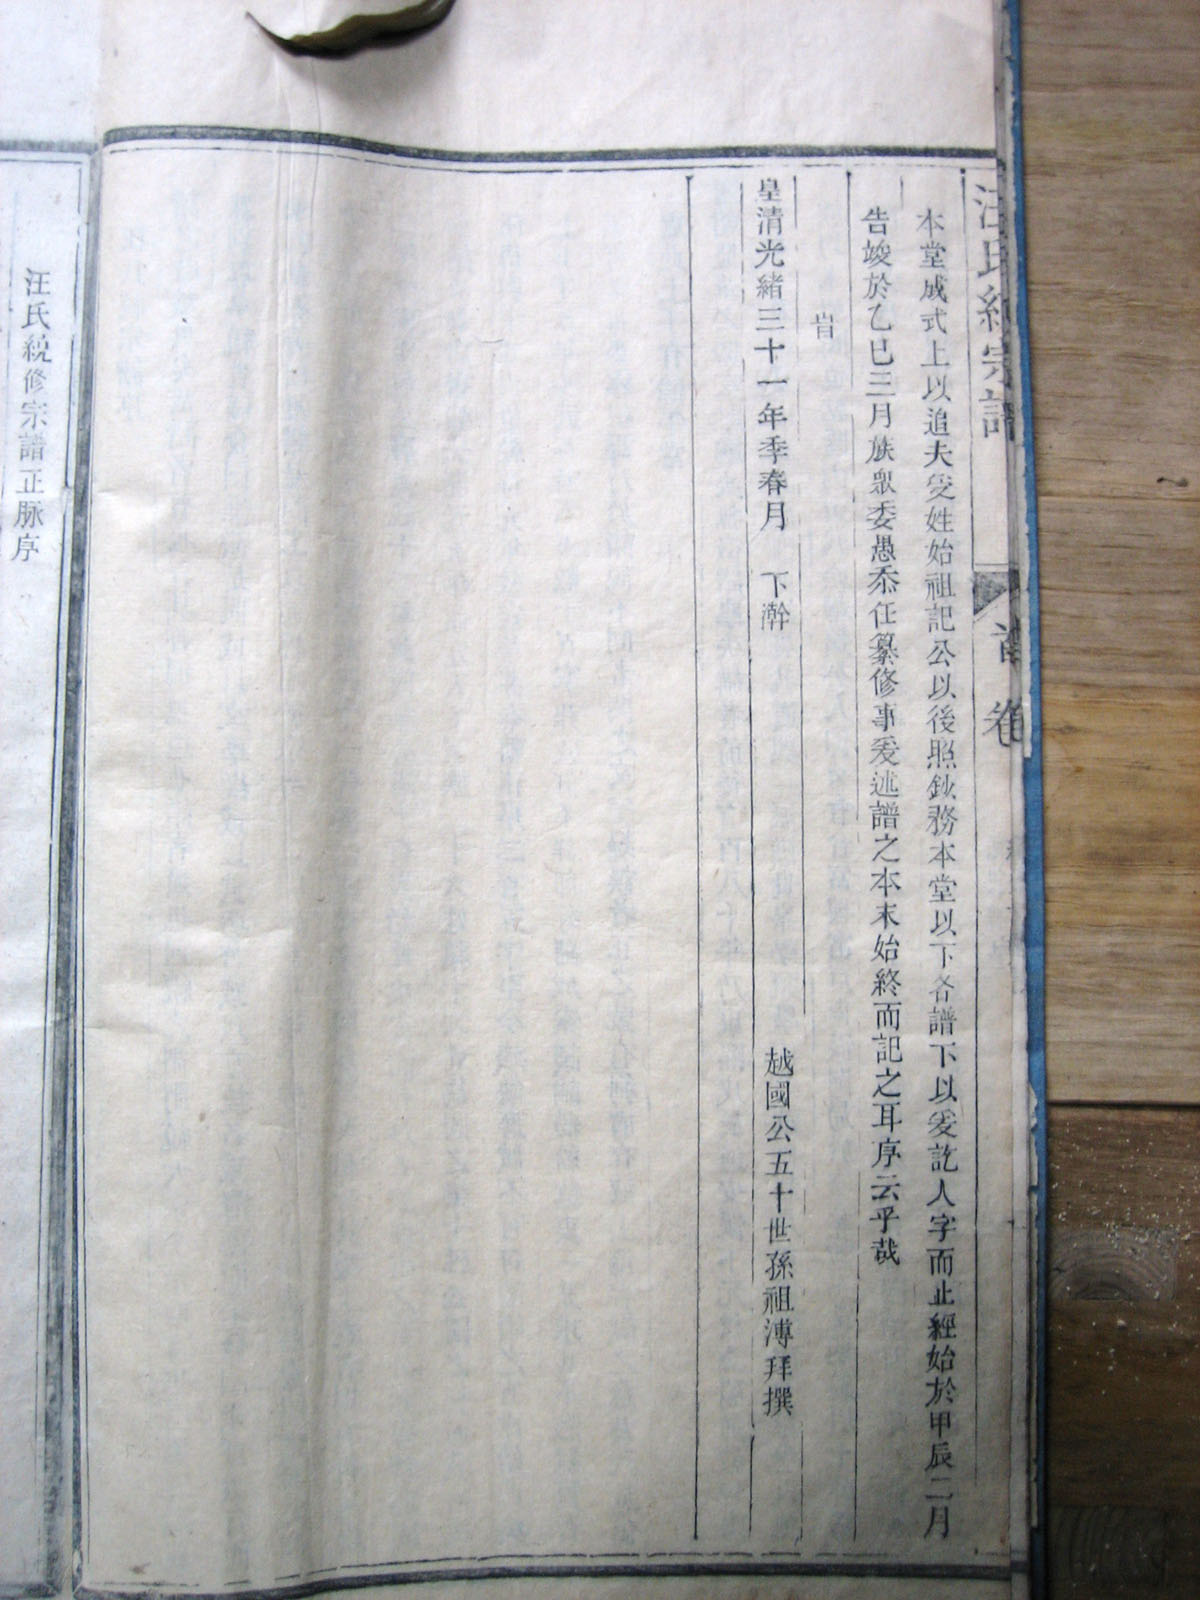 汪氏統宗譜 首卷
本堂成式上以追夫受姓始祖記公以後照鈔務本堂以下各譜下以爰訖人字而止經始於甲辰二月
告竣於乙巳三月族眾委愚忝任纂修事爰述譜之本末始終而記之耳序云乎哉
旹
皇清光緒三十一年季春月 下澣 越國公五十世孫祖溥拜撰
汪氏統修宗譜正脉序